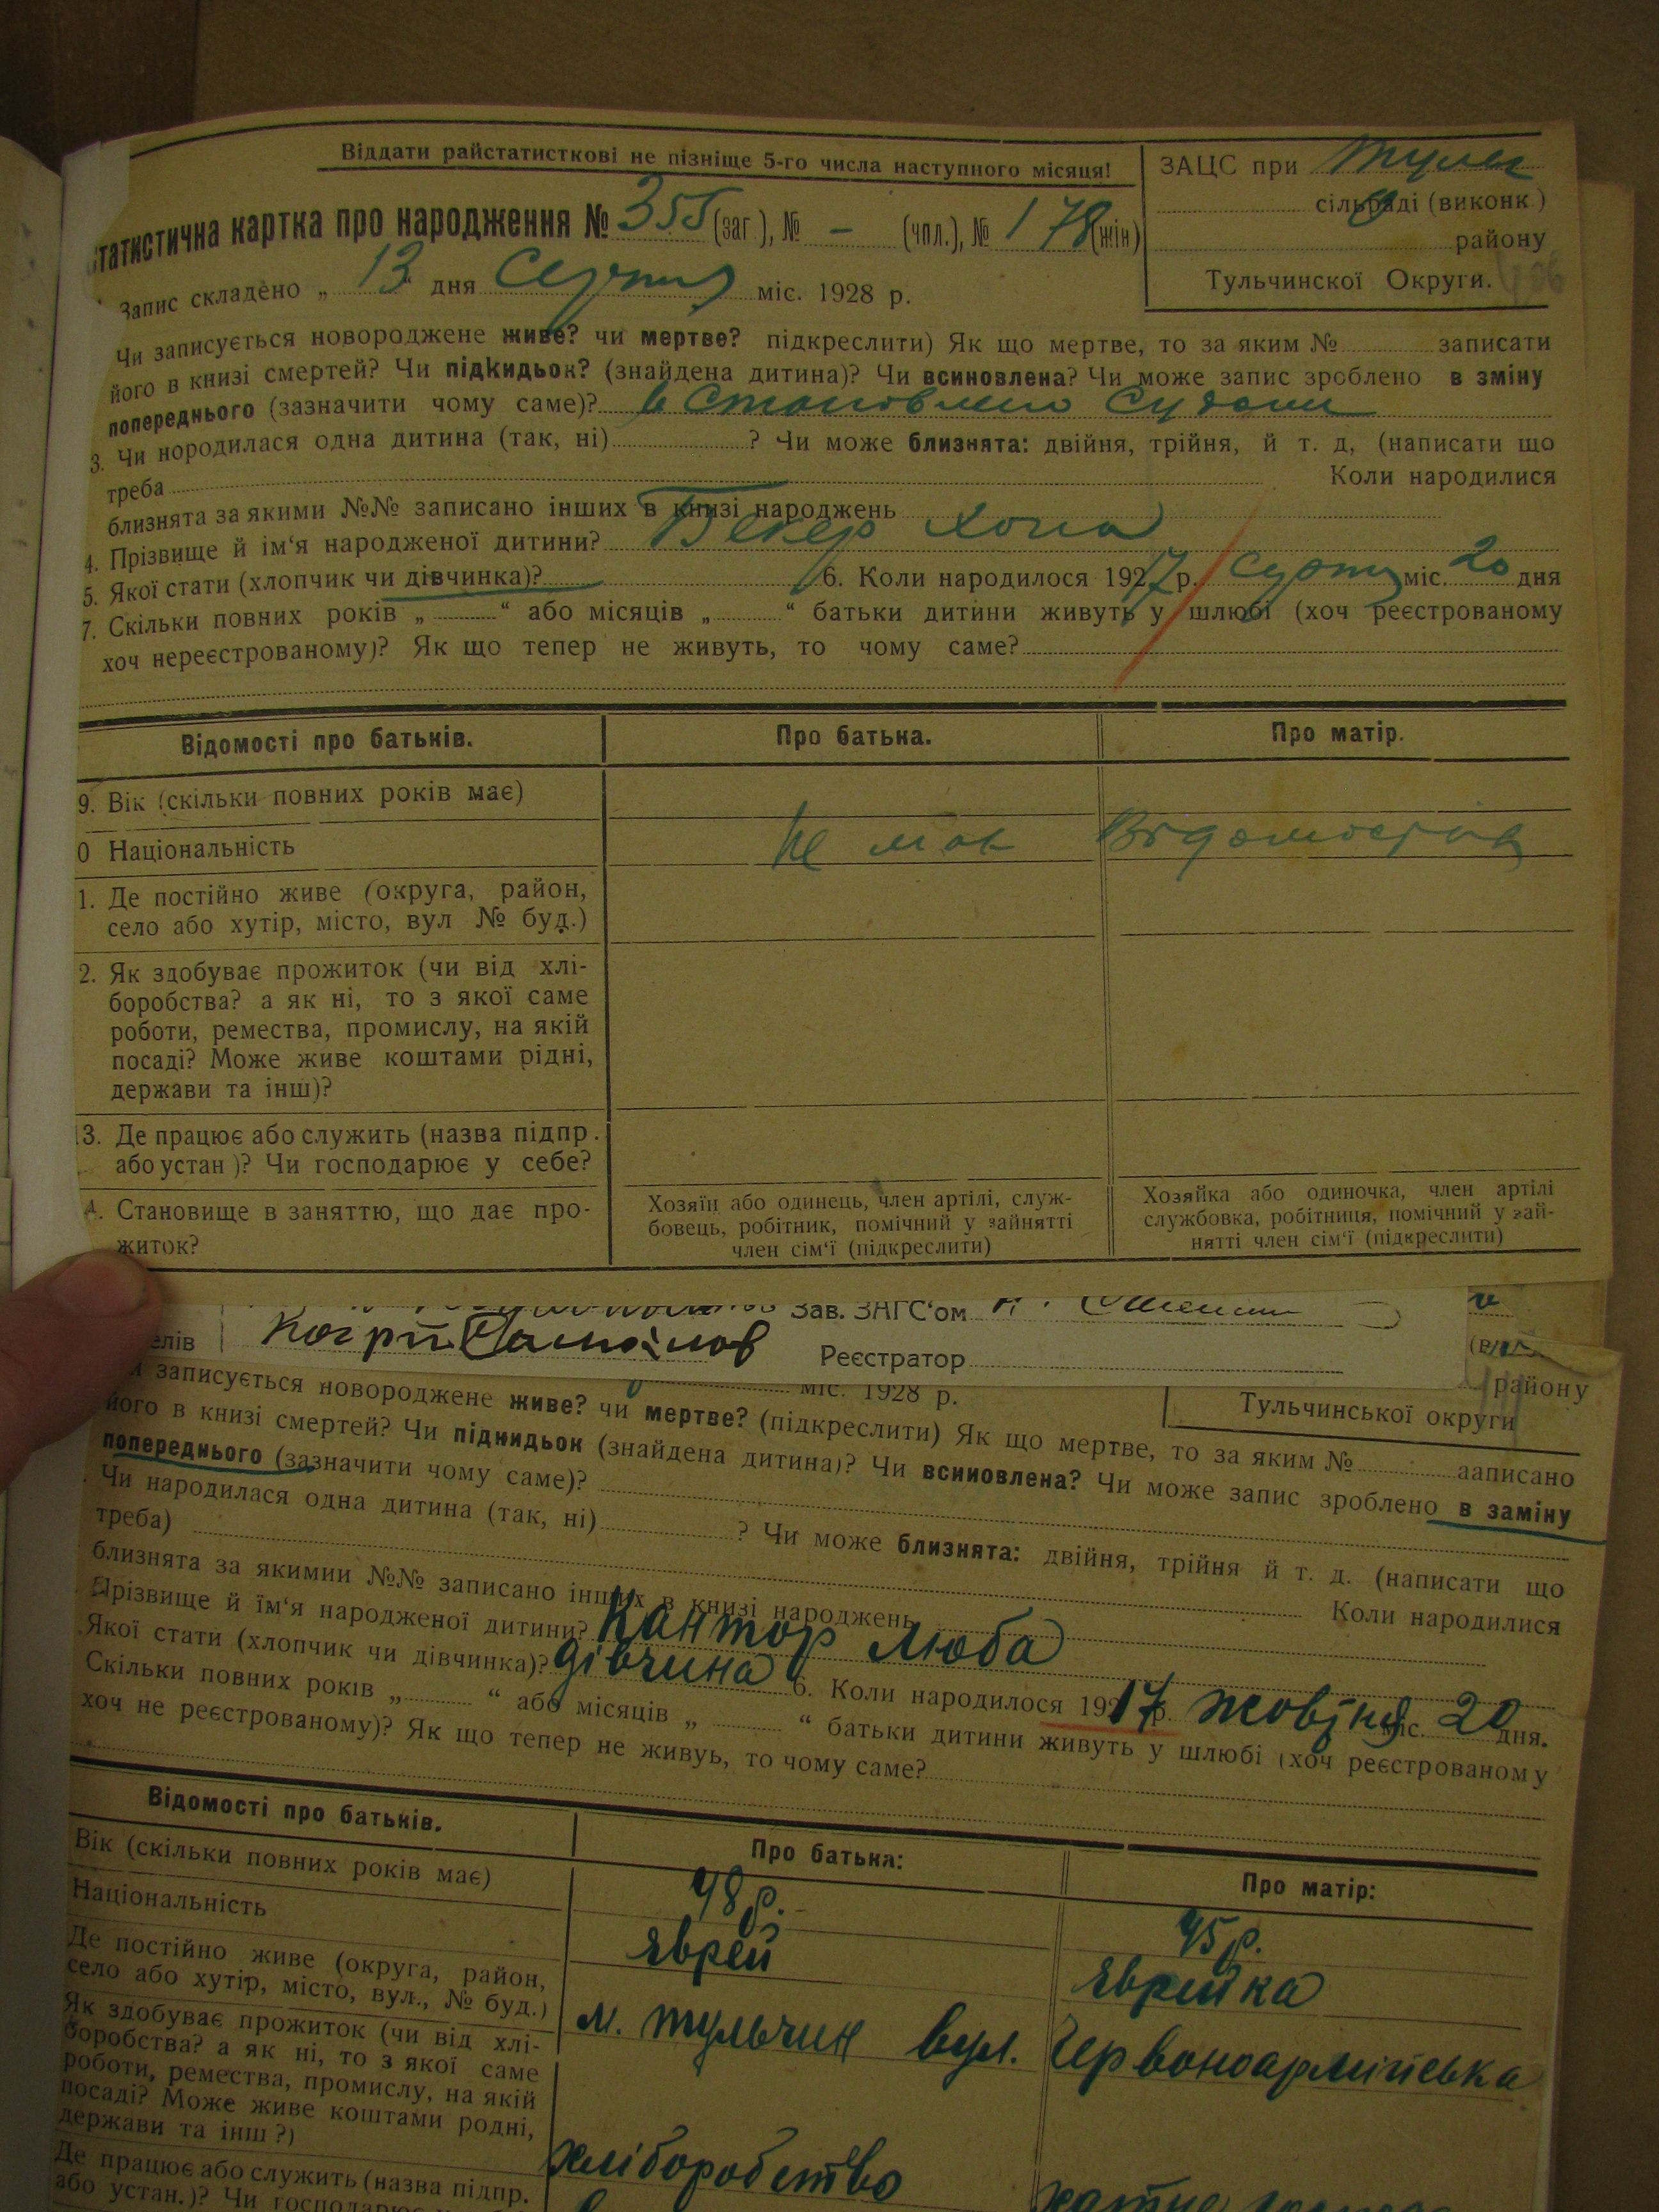 Віддати райстатисткові не пізніще 5-го числа наступного місяця!
ЗАЦС при Тульч
сільраді (виконк.)
району
Тульчинскої Округи.
татистична картка про народження № 355 (заг.), № - (чпл.), № 178 (жін)
Запис складено „ 13 " дня Серпня міс. 1928 р.
Чи записується новороджене живе? чи мертве? підкреслити) Як що мертве, то за яким № записати
його в книзі смертей? Чи підкидьок? (знайдена дитина)? Чи всиновлена? Чи може запис зроблено в зміну
попереднього (зазначити чому саме)? Встановлено Судом
3. Чи нородилася одна дитина (так, ні) ? Чи може близнята: двійня, трійня, й т. д, (написати що
треба Коли народилися
близнята за якими №№ записано інших в книзі народжень
4. Прізвище й ім'я народженої дитини? Бекер Хона
5. Якої стати (хлопчик чи дівчинка)? 6. Коли народилося 1917 р. Серпня міс. 20 дня
7. Скільки повних років „ " або місяців „ " батьки дитини живуть у шлюбі (хоч реєстрованому
хоч нереєстрованому)? Як що тепер не живуть, то чому саме?
Відомості про батьків.
Про батька.
Про матір.
9. Вік (скільки повних років має)
0 Національність
Не має Відомостів
1. Де постійно живе (округа, район,
село або хутір, місто, вул № буд.)
2. Як здобуває прожиток (чи від хлі-
боробства? а як ні, то з якої саме
роботи, ремества, промислу, на якій
посаді? Може живе коштами рідні,
держави та інш)?
13. Де працює або служить (назва підпр.
або устан )? Чи господарює у себе?
4. Становище в заняттю, що дає про-
житок?
Хозяїн або одинець, член артілі, служ-
бовець, робітник, помічний у зайнятті
член сім'ї (підкреслити)
Хозяйка або одиночка, член артілі
службовка, робітниця, помічний у зай-
нятті член сім'ї (підкреслити)
Зав. ЗАГС'ом
елів
Реєстратор
району
міс. 1928 р.
Тульчинської округи
записується новороджене живе? чи мертве? (підкреслити) Як що мертве, то за яким № ааписано
його в книзі смертей? Чи підкидьок (знайдена дитина)? Чи всиновлена? Чи може запис зроблено в заміну
попереднього (зазначити чому саме)?
Чи народилася одна дитина (так, ні) ? Чи може близнята: двійня, трійня й т. д. (написати що
треба) Коли народилися
близнята за якимии №№ записано інших в книзі народжень
Прізвище й їм'я народженої дитини? Кантор Люба
Якої стати (хлопчик чи дівчинка)? дівчина 6. Коли народилося 1917 р. жовтня міс. 20 дня.
Скільки повних років „ " або місяців „ " батьки дитини живуть у шлюбі (хоч реєстрованому
хоч не реєстрованому)? Як що тепер не живуь, то чому саме?
Відомості про батьків.
Про батька:
Про матір:
Вік (скільки повних років має)
48 р.
45 р.
Національність
Яврей
Яврейка
Де постійно живе (округа, район,
село або хутір, місто, вул., № буд.)
м. Тульчин вул. Червоноармійська
Як здобуває прожиток (чи від хлі-
боробства? а як ні, то з якої саме
роботи, ремества, промислу, на якій
посаді? Може живе коштами родні,
держави та інш ?)
хліборобство
Де працює або служить (назва підпр.
або устан.)? Чи